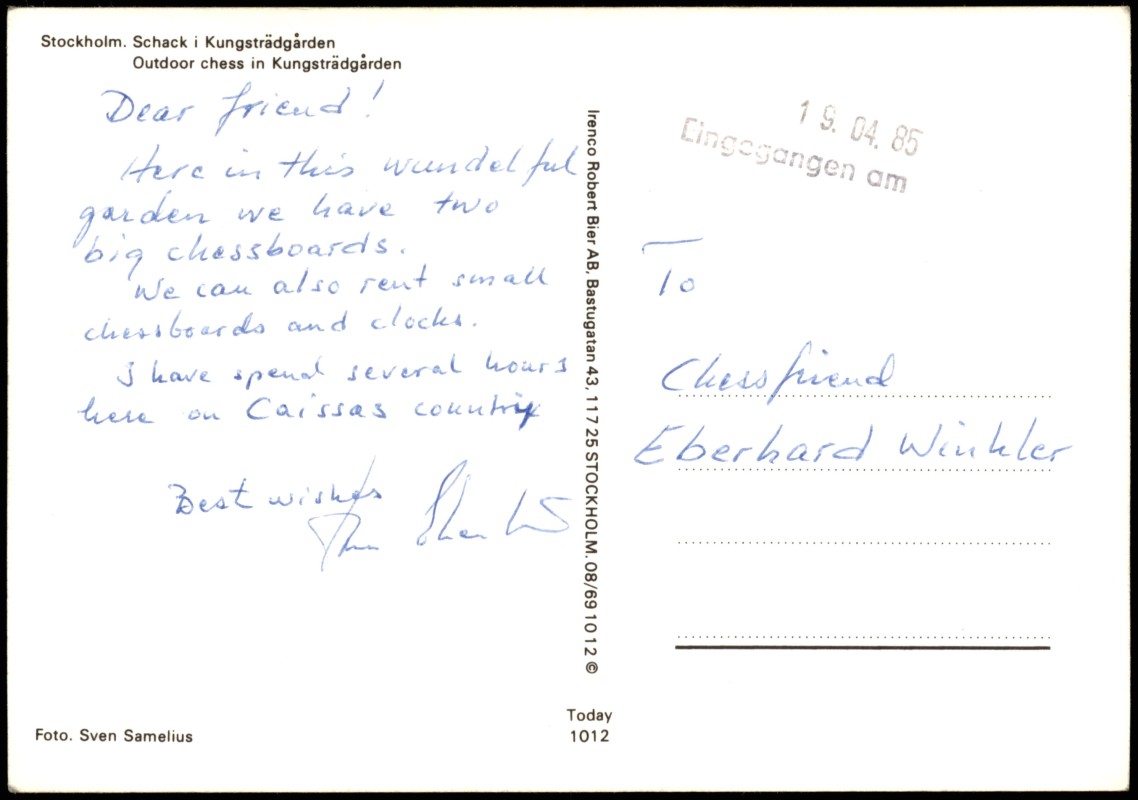 Stockholm. Schack i Kungsträdgården
Outdoor chess in Kungsträdgården
Dear friend!
Here in this wundelful
garden we have two
big chessboards.
We can also rent small
chessboards and clocks.
I have spend several hours
here on Caissas country
Best wishes
Irenco Robert Bier AB, Bastugatan 43, 117 25 STOCKHOLM. 08/69 10 12 ©
19. 04. 85
Eingegangen am
To
Chessfriend
Eberhard Winkler
Today
1012
Foto. Sven Samelius